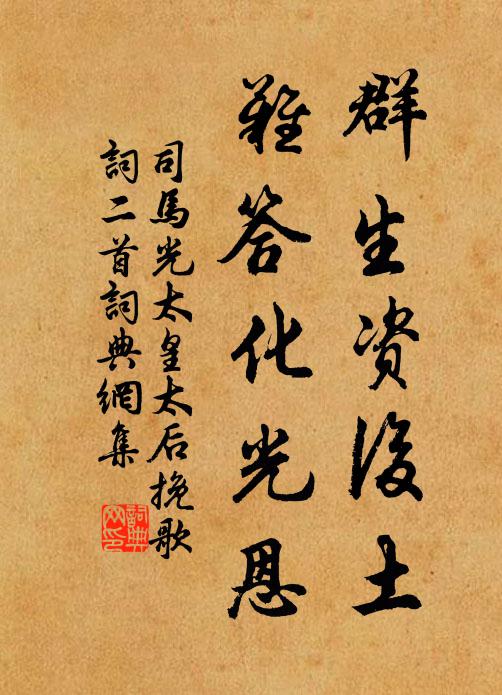 群生资後土
難答化光恩
司馬光太皇太后挽歌
詞二首詞典網集
詞典网印